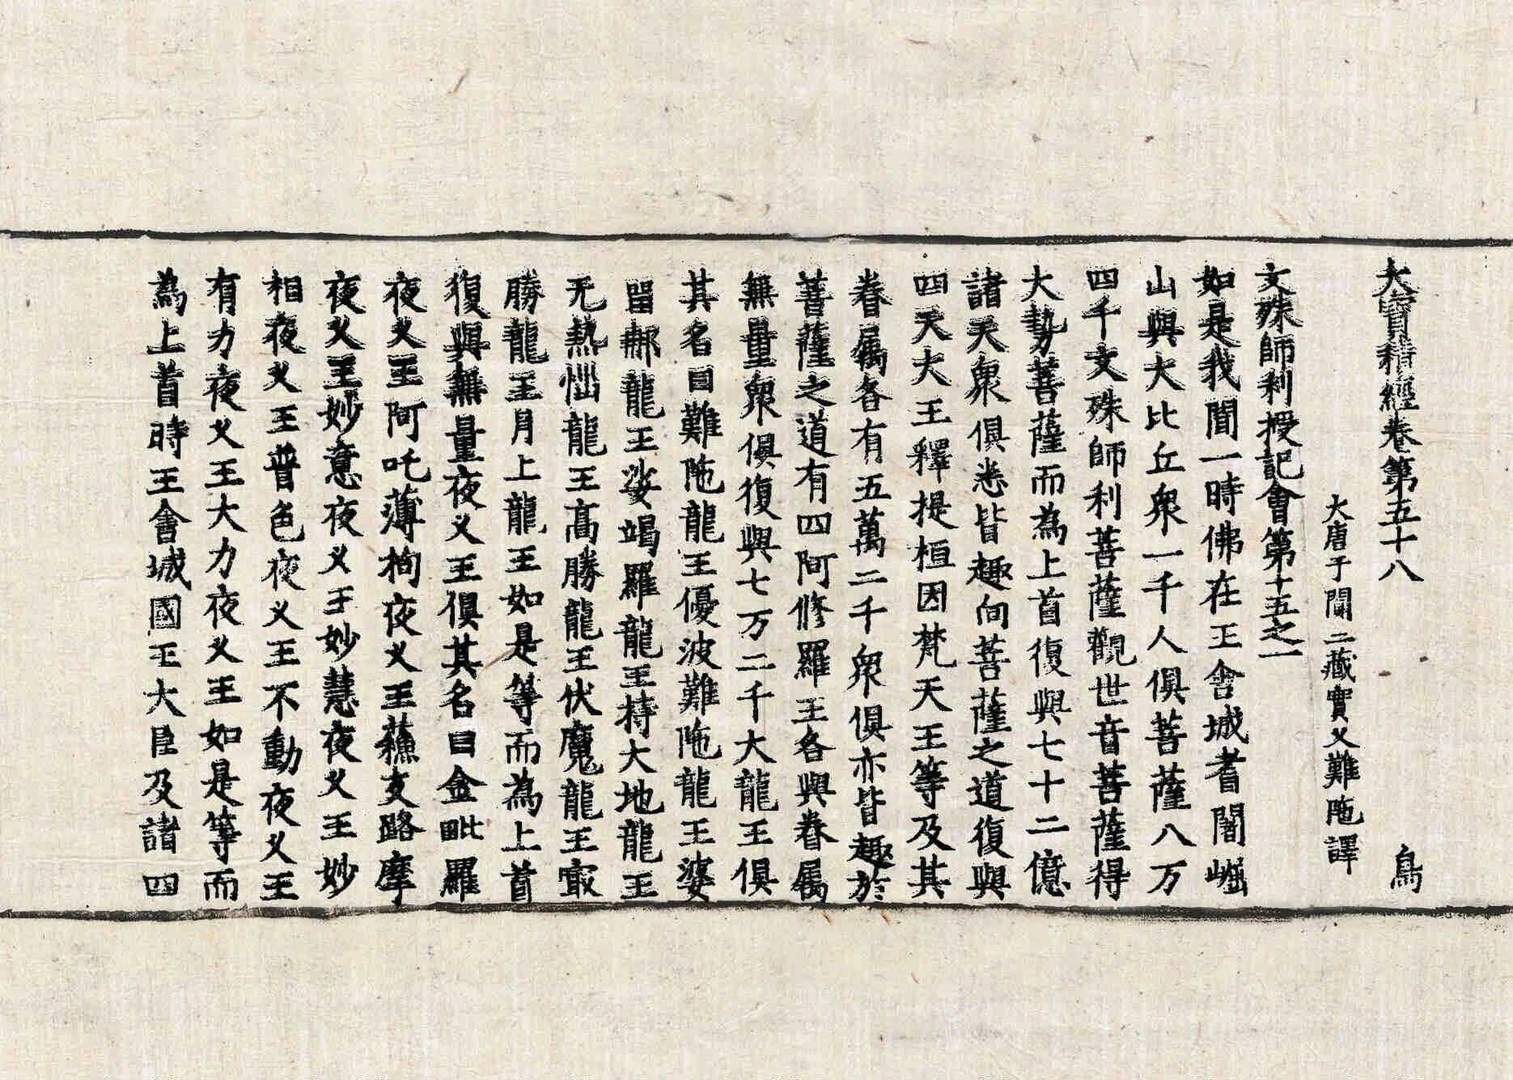 大寶積經卷第五十八　鳥
大唐于闐三藏實叉難陁譯
文殊師利授記會第十五之一
如是我聞一時佛在王舍城耆闍崛
山與大比丘衆一千人俱菩薩八万
四千文殊師利菩薩觀世音菩薩得
大勢菩薩而為上首復與七十二億
諸天衆俱悉皆趣向菩薩之道復與
四天大王釋提桓因梵天王等及其
眷属各有五萬二千衆俱亦皆趣於
菩薩之道有四阿修羅王各與眷属
無量衆俱復與七万二千大龍王俱
其名曰難陁龍王優波難陁龍王婆
留郍龍王娑竭羅龍王持大地龍王
无熱惱龍王高勝龍王伏魔龍王㝡
勝龍王月上龍王如是等而為上首
復與無量夜叉王俱其名曰金毗羅
夜叉王阿吒薄拘夜叉王蘓支路摩
夜叉王妙意夜叉王妙慧夜叉王妙
相夜叉王普色夜叉王不動夜叉王
有力夜叉王大力夜叉王如是等而
為上首時王舍城國王大臣及諸四